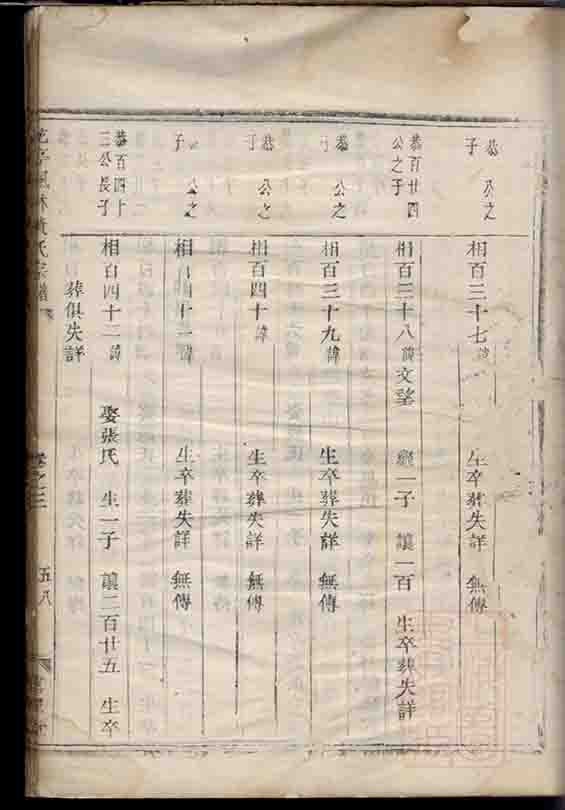 恭 公之
子
相百三十七諱 生卒葬失詳 無傳
恭百廿四
公之子
相百三十八諱文 一子 讓一百 生卒葬失詳
恭 公之
子
相百三十九諱 生卒葬失詳 無傳
恭 公之
子
相百四十諱 生卒葬失詳 無傳
公之
子
相百四十一諱 生卒葬失詳 無傳
恭百四十
三公長子
相百四十二諱 娶張氏 生一子 讓二百廿五 生卒
葬俱失詳
氏宗譜 卷之三 五八